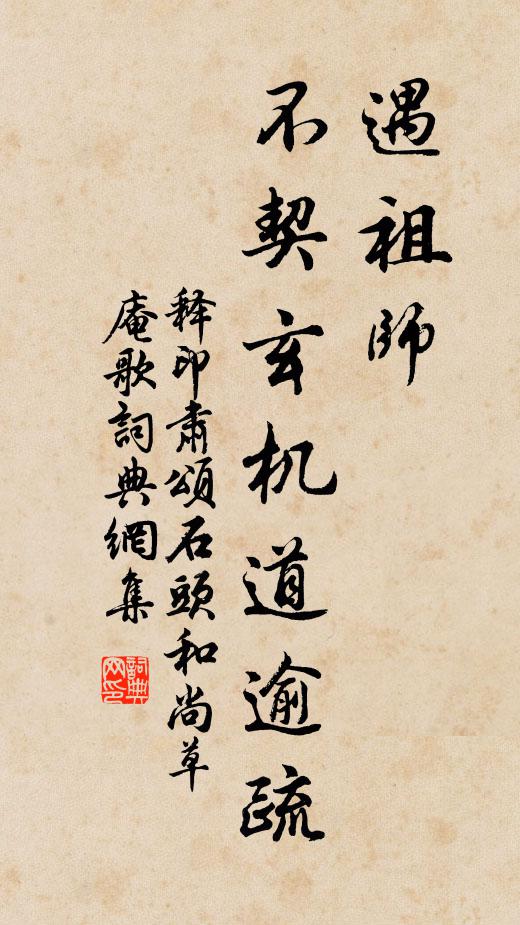 遇祖师
不契玄机道逾疏
释印肃颂石頭和尚草
庵歌詞典網集
詞典网印